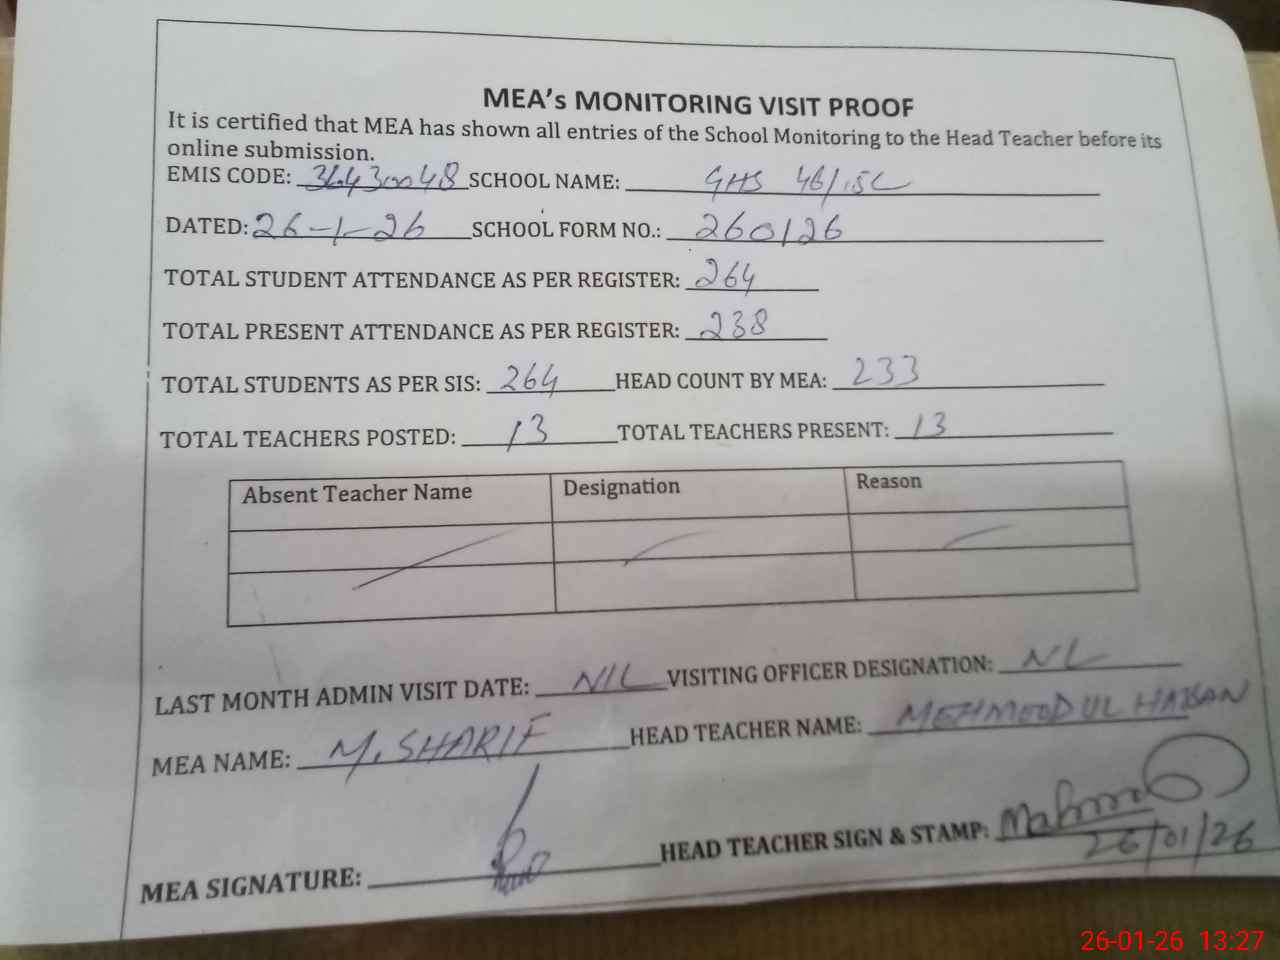 MEA's MONITORING VISIT PROOF
It is certified that MEA has shown all entries of the School Monitoring to the Head Teacher before its
online submission.
EMIS CODE: SCHOOL NAME: GHS 46/15L
DATED: 26-1-26 SCHOOL FORM NO.: 260126
TOTAL STUDENT ATTENDANCE AS PER REGISTER: 264
TOTAL PRESENT ATTENDANCE AS PER REGISTER: 238
TOTAL STUDENTS AS PER SIS: 264 HEAD COUNT BY MEA: 233
TOTAL TEACHERS POSTED: 13 TOTAL TEACHERS PRESENT: 13
Absent Teacher Name Designation Reason
LAST MONTH ADMIN VISIT DATE: NIL VISITING OFFICER DESIGNATION: NL
MEA NAME: M. SHARIF HEAD TEACHER NAME: MEHMEOD UL HASSAN
MEA SIGNATURE: HEAD TEACHER SIGN & STAMP:
26/01/26
26-01-26 13:27